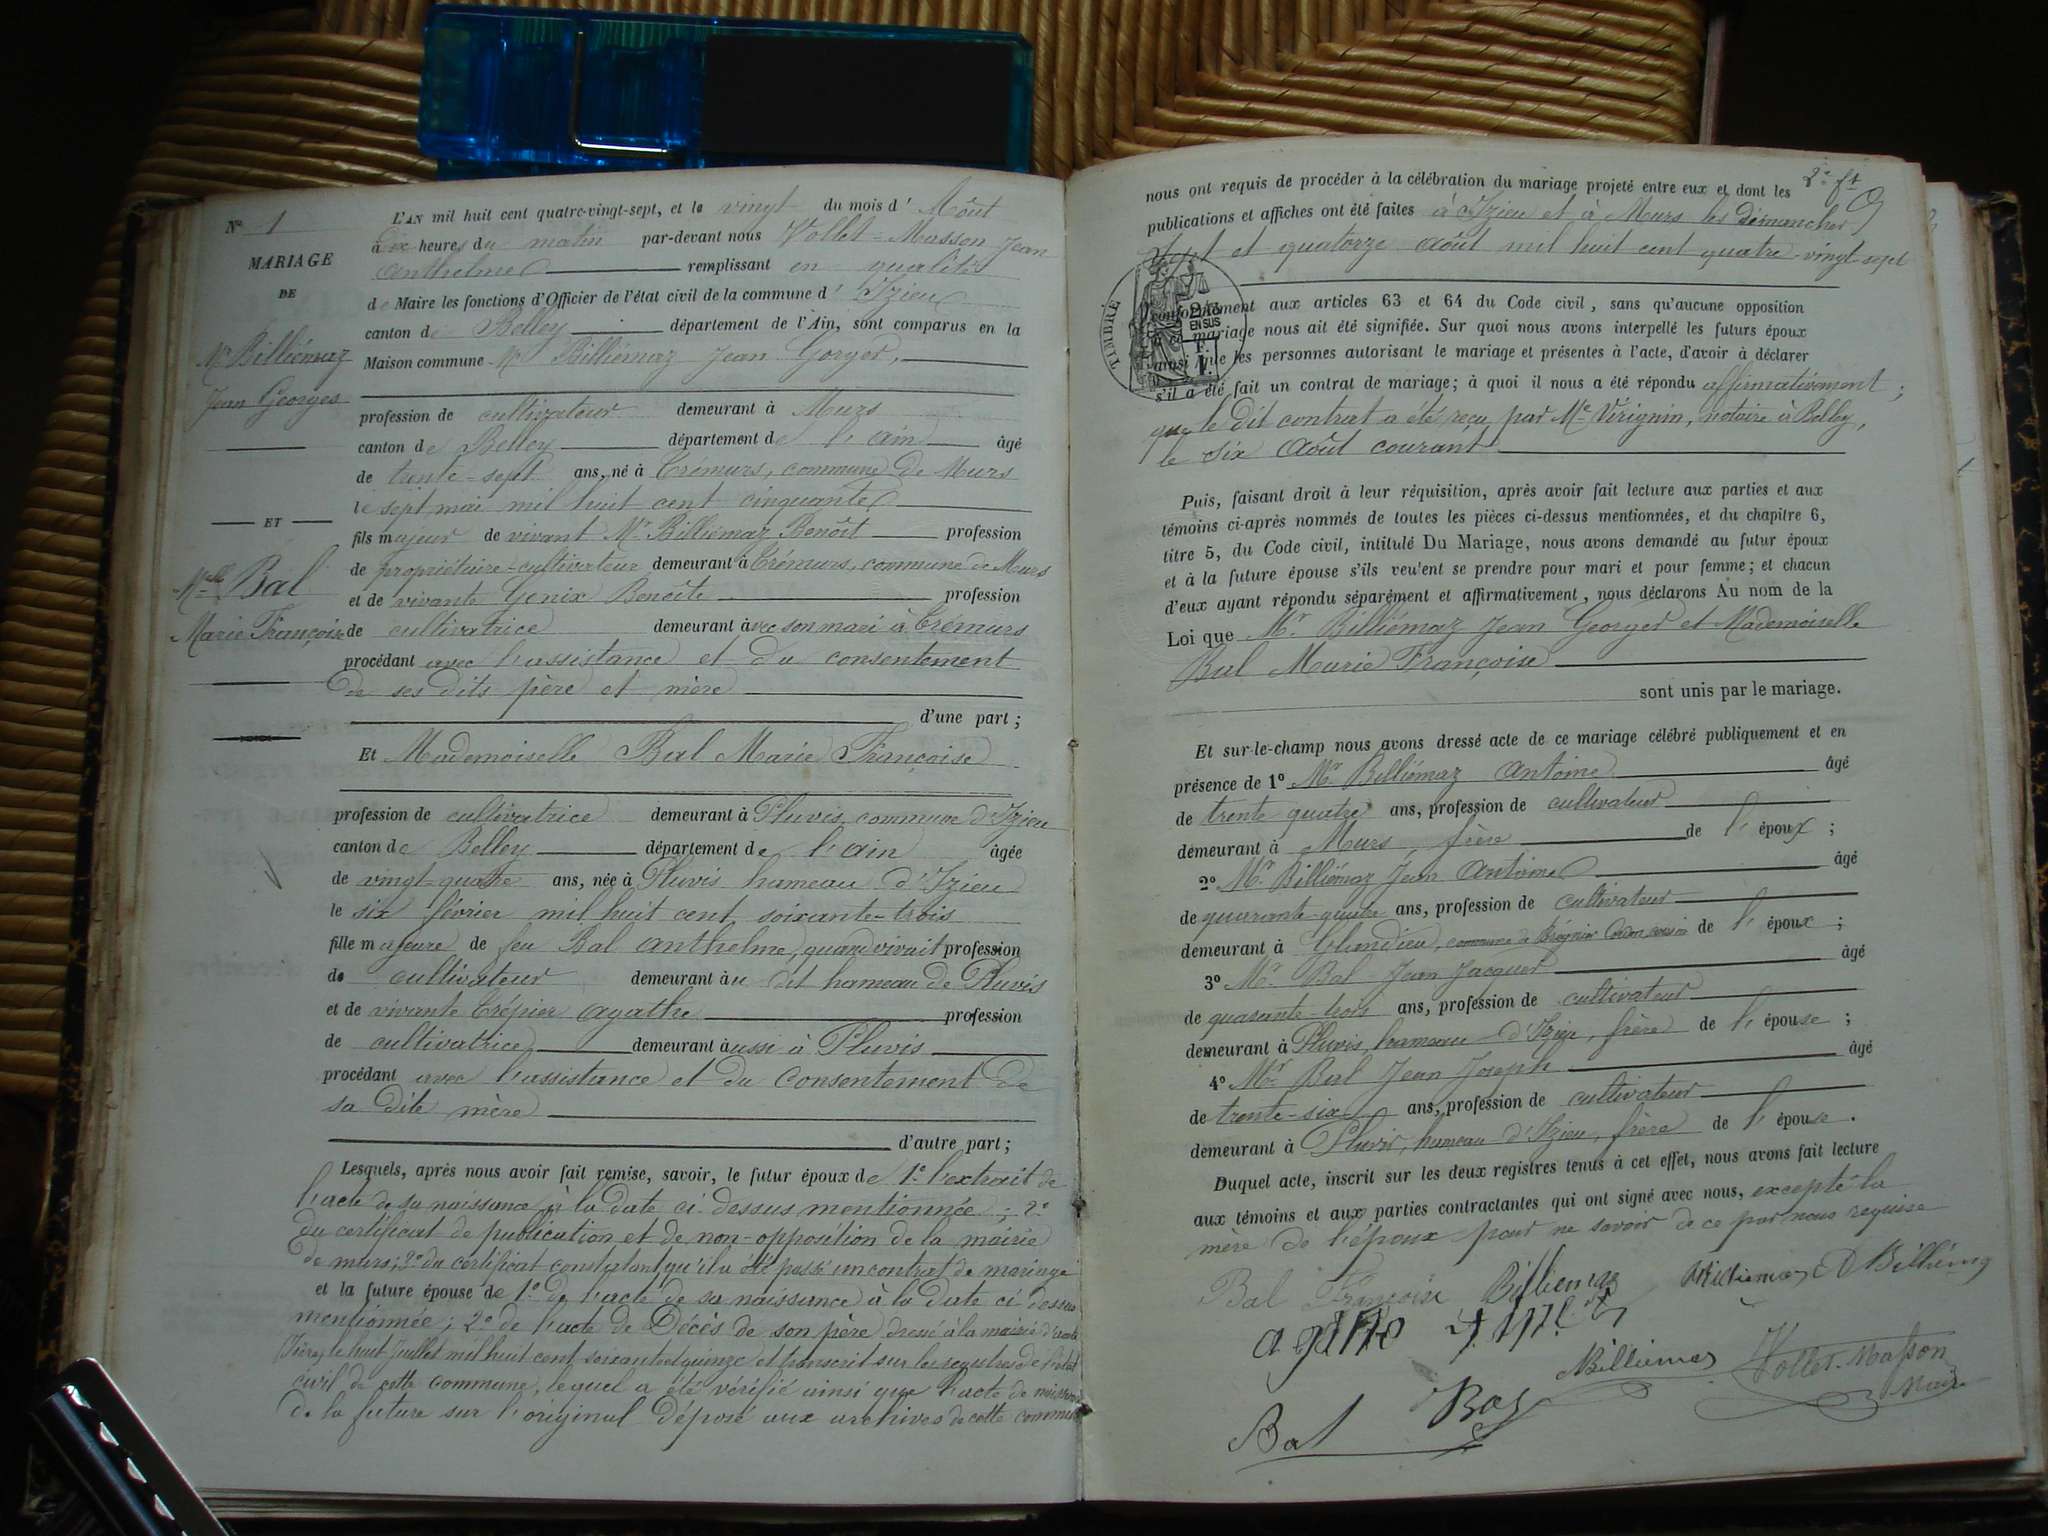 N° 1
MARIAGE
DE
Mr Billiémaz
Jean Georges
ET
Melle Bal
Marie Françoise
L'AN mil huit cent quatre-vingt-sept, et le vingt du mois d'Août
à dix heures du matin par-devant nous Vollet-Masson Jean
Anthelme remplissant en qualité
de Maire les fonctions d'Officier de l'état civil de la commune d'Izieu
canton de Belley département de l'Ain, sont comparus en la
Maison commune Mr Billiémaz Jean Gorges,
profession de cultivateur demeurant à Murs
canton de Belley département de l'ain âgé
de trente-sept ans, né à Crémurs, commune de Murs
le sept mai mil huit cent cinquante
fils majeur de vivant Mr Billiémaz Benoît profession
de propriétaire-cultivateur demeurant à Crémurs, commune de Murs
et de vivante Genix Benoîte profession
de cultivatrice demeurant avec son mari à Crémurs
procédant avec l'assistance et du consentement
de ses dits père et mère
d'une part ;
Et Mademoiselle Bal Marie Françoise
profession de cultivatrice demeurant à Pluvis, commune d'Izieu
canton de Belley département de l'ain âgée
de vingt-quatre ans, née à Pluvis hameau d'Izieu
le six février mil huit cent soixante-trois
fille majeure de feu Bal Anthelme, quand vivait profession
de cultivateur demeurant au dit hameau de Pluvis
et de vivante Crépier Agathe profession
de cultivatrice demeurant aussi à Pluvis
procédant avec l'assistance et du consentement de
sa dite mère
d'autre part ;
Lesquels, après nous avoir fait remise, savoir, le futur époux de 1° l'extrait de
l'acte de sa naissance à la date ci dessus mentionnée ; 2°
du certificat de publication et de non-opposition de la mairie
de murs ; 3° du certificat constatant qu'il a été passé un contrat de mariage
et la future épouse de 1° de l'acte de sa naissance à la date ci dessus
mentionnée ; 2° de l'acte de Décès de son père dressé à la mairie d'
(Isère) le huit Juillet mil huit cent soixante et quinze et transcrit sur les registres de l'état
civil de cette commune, lequel a été vérifié ainsi que l'acte de naissance
de la future sur l'original déposé aux archives de cette commune
2e ft
nous ont requis de procéder à la célébration du mariage projeté entre eux et dont les
publications et affiches ont été faites à Izieu et à Murs les dimanches
sept et quatorze août mil huit cent quatre-vingt-sept
TIMBRE
2/10
EN SUS
1 F.
conformément aux articles 63 et 64 du Code civil, sans qu'aucune opposition
à ce mariage nous ait été signifiée. Sur quoi nous avons interpellé les futurs époux
ainsi que les personnes autorisant le mariage et présentes à l'acte, d'avoir à déclarer
s'il a été fait un contrat de mariage ; à quoi il nous a été répondu affirmativement ;
que le dit contrat a été reçu par Me Virignin, notaire à Belley,
le six Août courant
Puis, faisant droit à leur réquisition, après avoir fait lecture aux parties et aux
témoins ci-après nommés de toutes les pièces ci-dessus mentionnées, et du chapitre 6,
titre 5, du Code civil, intitulé Du Mariage, nous avons demandé au futur époux
et à la future épouse s'ils veu'ent se prendre pour mari et pour femme ; et chacun
d'eux ayant répondu séparément et affirmativement, nous déclarons Au nom de la
Loi que Mr Billiémaz Jean Georges et Mademoiselle
Bal Marie Françoise
sont unis par le mariage.
Et sur-le-champ nous avons dressé acte de ce mariage célébré publiquement et en
présence de 1° Mr Billiémaz Antoine âgé
de trente quatre ans, profession de cultivateur
demeurant à Murs, frère de l'époux ;
2° Mr Billiémaz Jean Antoine âgé
de quarante-quatre ans, profession de cultivateur
demeurant à commune de Brégnier Cordon cousin de l'époux ;
3° Mr Bal Jean Jacques âgé
de quarante-trois ans, profession de cultivateur
demeurant à Pluvis, hameau d'Izieu, frère de l'épouse ;
4° Mr Bal Jean Joseph âgé
de trente-six ans, profession de cultivateur
demeurant à Pluvis, hameau d'Izieu, frère de l'épouse.
Duquel acte, inscrit sur les deux registres tenus à cet effet, nous avons fait lecture
aux témoins et aux parties contractantes qui ont signé avec nous, excepté la
mère de l'époux pour ne savoir de ce par nous requise
Bal Françoise Billiemaz Billiemaz A Billiémaz
Billiemaz Vollet-Masson
Maire
Bal Bal